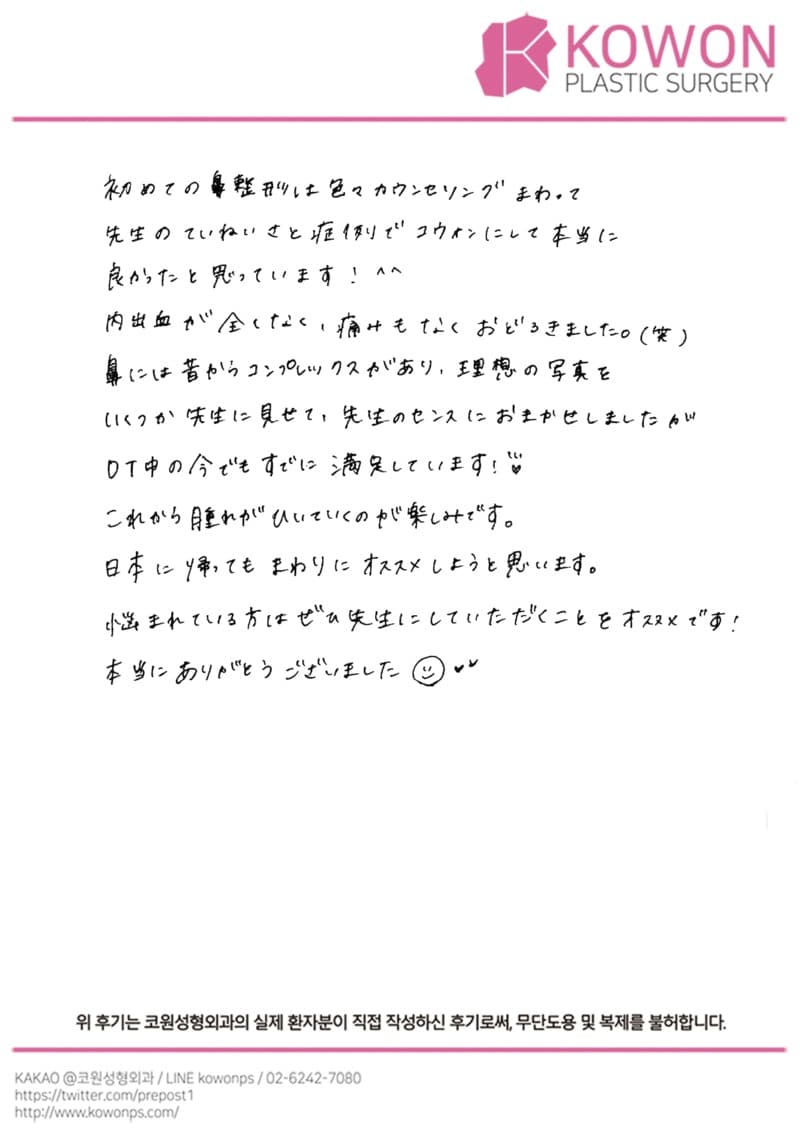 KOWON
PLASTIC SURGERY
初めての鼻整形は色々カウンセリングまわって
先生のていねいさと症例でコウォンにして本当に
良かったと思っています！^^
内出血が全くなく、痛みもなくおどろきました。(笑)
鼻には昔からコンプレックスがあり、理想の写真を
いくつか先生に見せて、先生のセンスにおまかせしましたが
DT中の今でもすでに満足しています！
これから腫れがひいていくのが楽しみです。
日本に帰ってもまわりにオススメしようと思います。
悩まれている方はぜひ先生にしていただくことをオススメです！
本当にありがとうございました
위 후기는 코원성형외과의 실제 환자분이 직접 작성하신 후기로써, 무단도용 및 복제를 불허합니다.
KAKAO @코원성형외과 / LINE kowonps / 02-6242-7080
https://twitter.com/prepost1
http://www.kowonps.com/